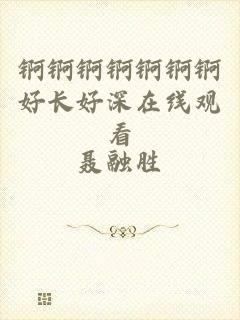 锕锕锕锕锕锕锕
好长好深在线观
看
聂融胜